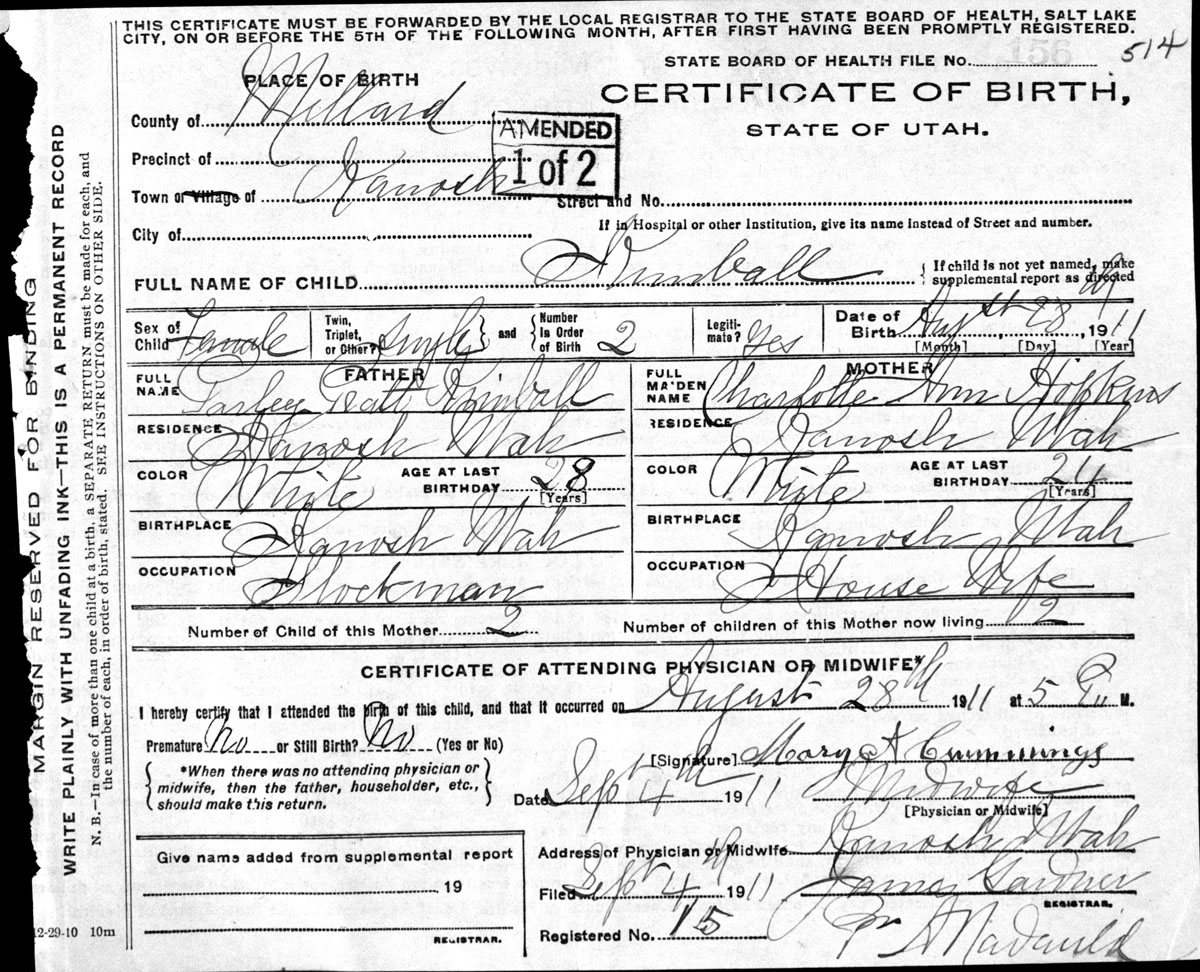 THIS CERTIFICATE MUST BE FORWARDED BY THE LOCAL REGISTRAR TO THE STATE BOARD OF HEALTH, SALT LAKE
CITY, ON OR BEFORE THE 5TH OF THE FOLLOWING MONTH, AFTER FIRST HAVING BEEN PROMPTLY REGISTERED.
156
514
STATE BOARD OF HEALTH FILE No.
PLACE OF BIRTH
CERTIFICATE OF BIRTH,
STATE OF UTAH.
County of Millard
AMENDED
1 of 2
Precinct of
Town or Village of Kanosh
Street and No.
City of
If in Hospital or other Institution, give its name instead of Street and number.
FULL NAME OF CHILD Kimball
If child is not yet named, make
supplemental report as directed
Sex of Child Female
Twin, Triplet, or Other? Single and Number in Order of Birth 2
Legitimate? Yes
Date of Birth August 28th 1911
[Month] [Day] [Year]
FATHER
FULL NAME Parley Pratt Kimball
RESIDENCE Kanosh Utah
COLOR White
AGE AT LAST BIRTHDAY 28
[Years]
BIRTHPLACE Kanosh Utah
OCCUPATION Stockman
MOTHER
FULL MAIDEN NAME Charlotte Ann Hopkins
RESIDENCE Kanosh Utah
COLOR White
AGE AT LAST BIRTHDAY 24
[Years]
BIRTHPLACE Kanosh Utah
OCCUPATION House Wife
Number of Child of this Mother 2
Number of children of this Mother now living 2
CERTIFICATE OF ATTENDING PHYSICIAN OR MIDWIFE*
I hereby certify that I attended the birth of this child, and that it occurred on August 28th 1911 at 5 P. M.
Premature No or Still Birth? No (Yes or No)
*When there was no attending physician or
midwife, then the father, householder, etc.,
should make this return.
[Signature] Mary A Cummings
Date Sept 4th 1911 Midwife
[Physician or Midwife]
Give name added from supplemental report
19
REGISTRAR.
Address of Physician or Midwife Kanosh Utah
Filed Sept 4th 1911 James Gardner
REGISTRAR.
Registered No. 15
12-29-10 10m
MARGIN RESERVED FOR BINDING
WRITE PLAINLY WITH UNFADING INK—THIS IS A PERMANENT RECORD
N. B.—In case of more than one child at a birth, a SEPARATE RETURN must be made for each, and
the number of each, in order of birth, stated. SEE INSTRUCTIONS ON OTHER SIDE.